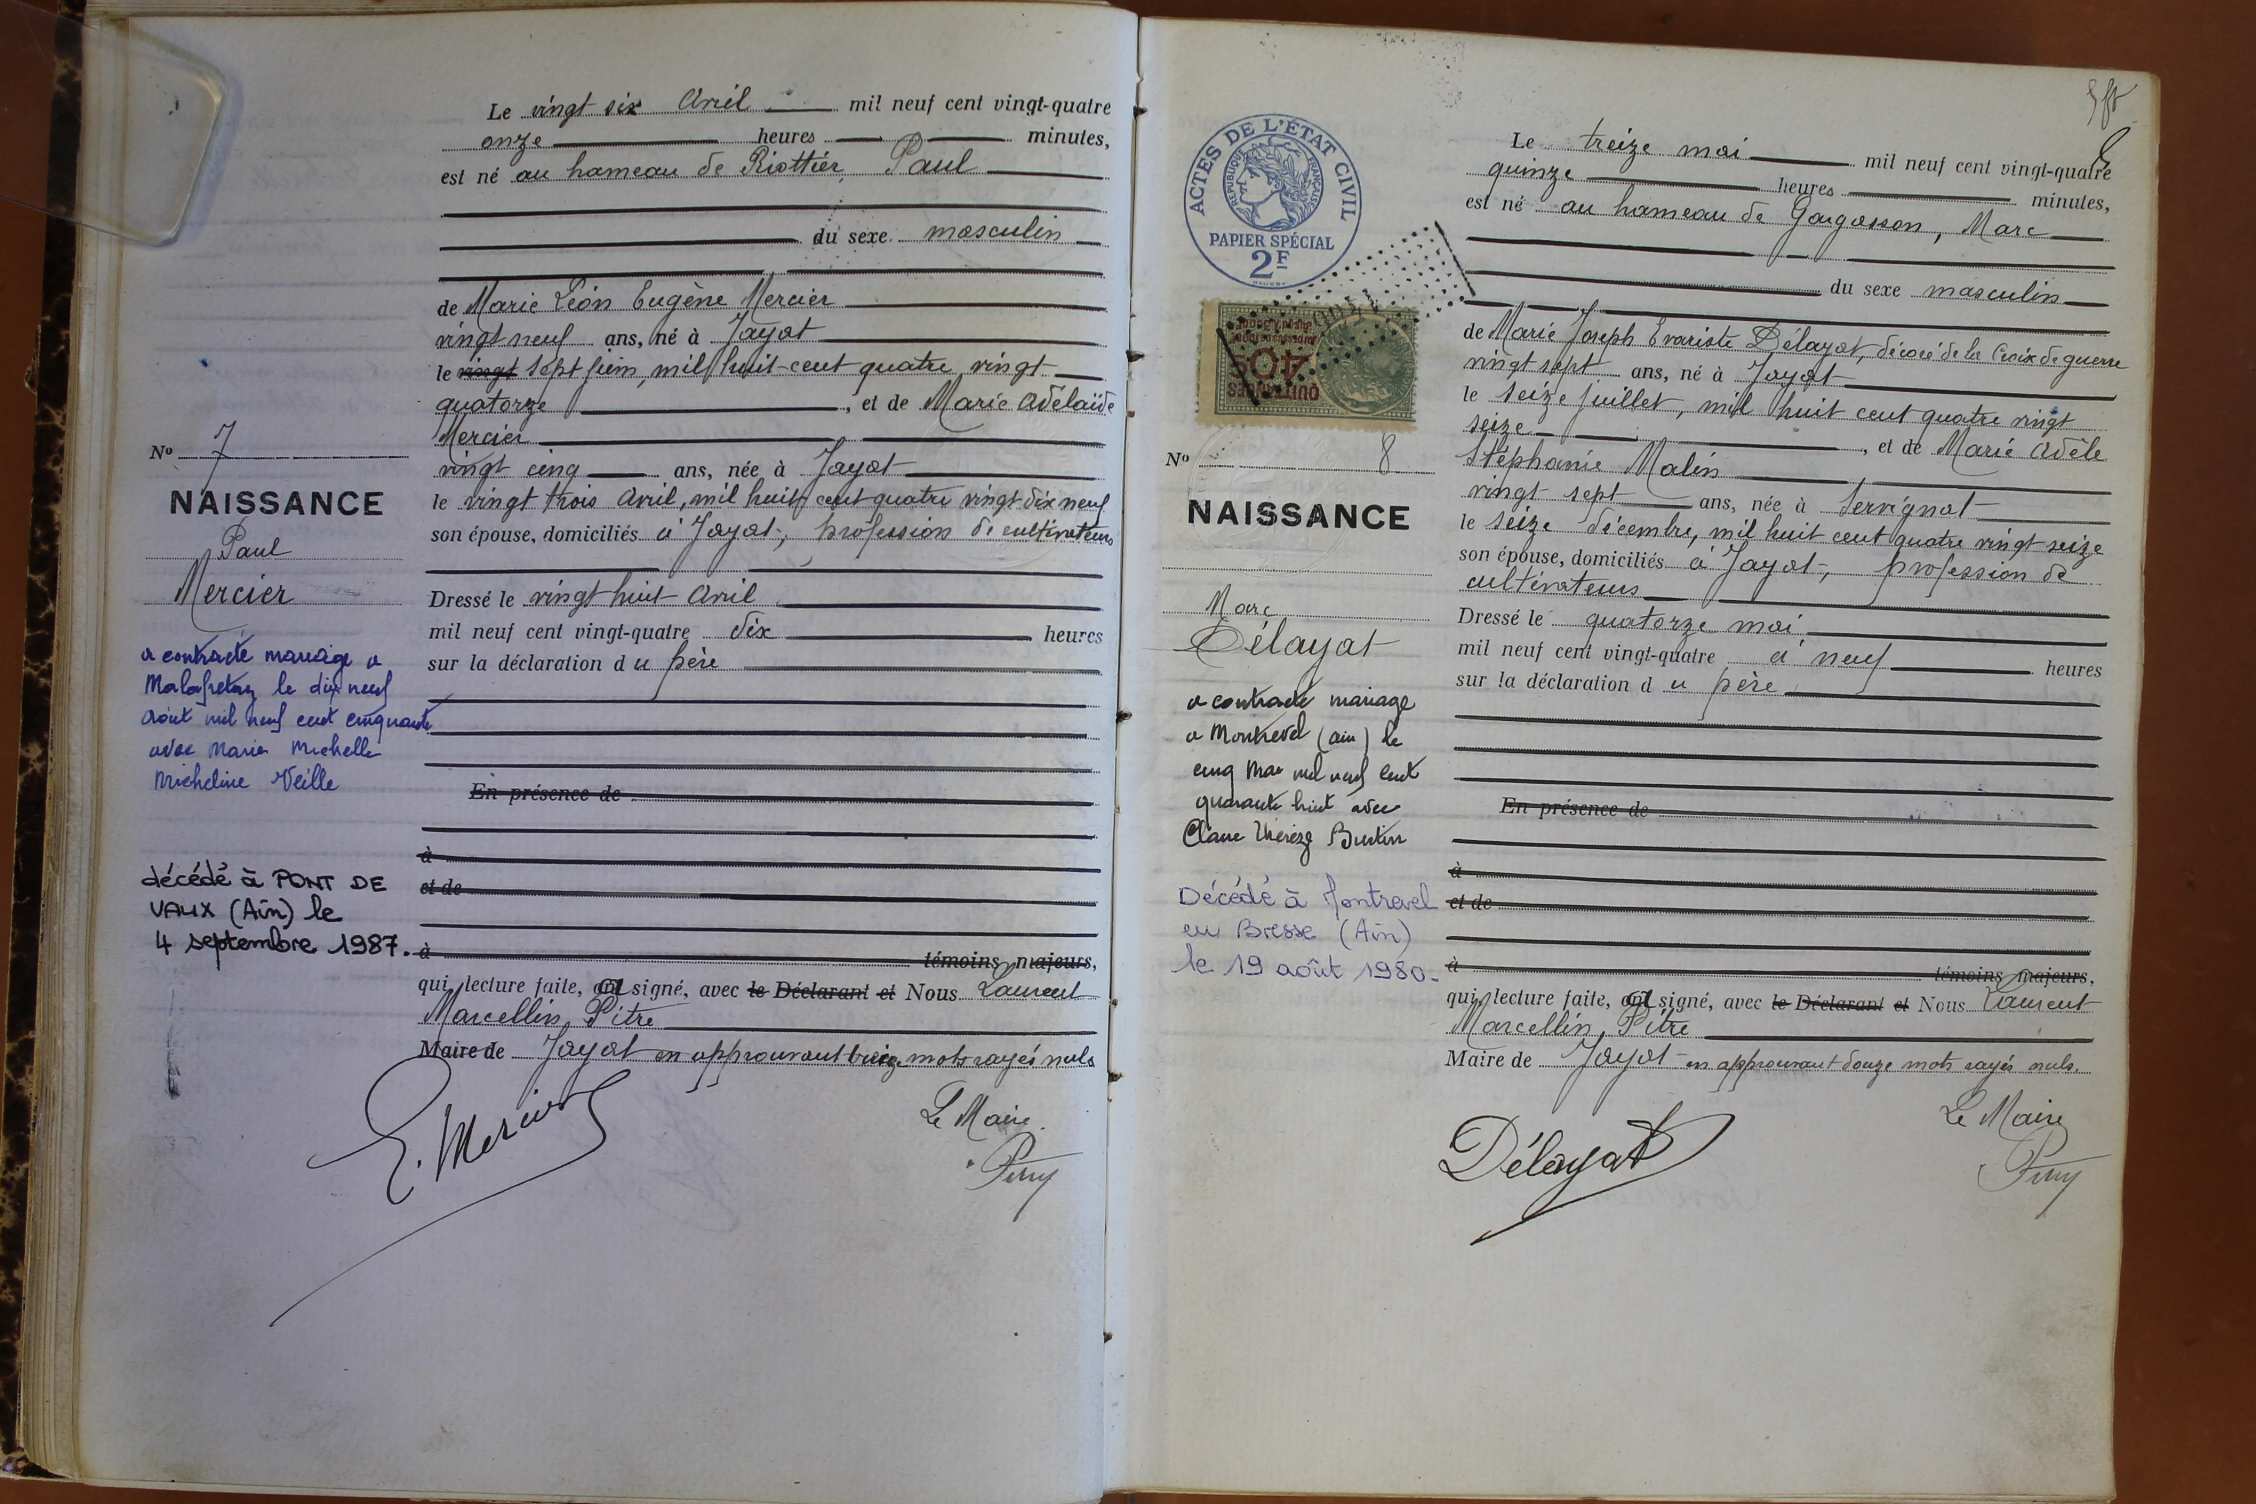 Le vingt six Avril mil neuf cent vingt-quatre
onze heures minutes,
est né au hameau de Riottier, Paul
du sexe masculin
de Marie Léon Eugène Mercier
vingt neuf ans, né à Jayat
le vingt sept juin, mil huit-cent quatre vingt
quatorze, et de Marie Adélaïde
Mercier
vingt cinq ans, née à Jayat
le vingt trois Avril, mil huit cent quatre vingt dix neuf
son épouse, domiciliés à Jayat, profession de cultivateurs
Dressé le vingt huit Avril
mil neuf cent vingt-quatre dix heures
sur la déclaration du père
En présence de
à
et de
à témoins majeurs,
qui, lecture faite, signé, avec le Déclarant et Nous Laurent
Marcellin Pitre
Maire de Jayat en approuvant mots rayés nuls
E. Mercier
Le Maire
No 7
NAISSANCE
Paul
Mercier
a contracté mariage a
Malafretaz le dix neuf
Août mil neuf cent cinquante
avec Marie Michelle
Micheline Veille
décédé à PONT DE
VAUX (Ain) le
4 septembre 1987.
ACTES DE L'ÉTAT CIVIL
RÉPUBLIQUE FRANÇAISE
PAPIER SPÉCIAL
2F
40
QUITTANCES
Le treize mai mil neuf cent vingt-quatre
quinze heures minutes,
est né au hameau de Gargasson, Marc
du sexe masculin
de Marie Joseph Evariste Délayat, décoré de la Croix de guerre
vingt sept ans, né à Jayat
le seize juillet, mil huit cent quatre vingt
seize, et de Marie Adèle
Stéphanie Malin
vingt sept ans, née à Servignat
le seize décembre, mil huit cent quatre vingt seize
son épouse, domiciliés à Jayat, profession de
cultivateurs
Dressé le quatorze mai
mil neuf cent vingt-quatre à neuf heures
sur la déclaration du père
En présence de
à
et de
à témoins majeurs,
qui, lecture faite, signé, avec le Déclarant et Nous Laurent
Marcellin Pitre
Maire de Jayat en approuvant douze mots rayés nuls.
Délayat
Le Maire
No 8
NAISSANCE
Marc
Délayat
a contracté mariage
a Montrevel (ain) le
cinq Mai mil neuf cent
quarante huit avec
Claire Thérèze
Décédé à Montrevel
en Bresse (Ain)
le 19 août 1980.